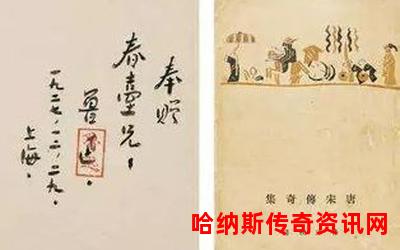 奉贈
春臺兄：
魯迅
一九二七，一二，二九。
上海。
集奇傳宋唐
哈纳斯传奇资讯网